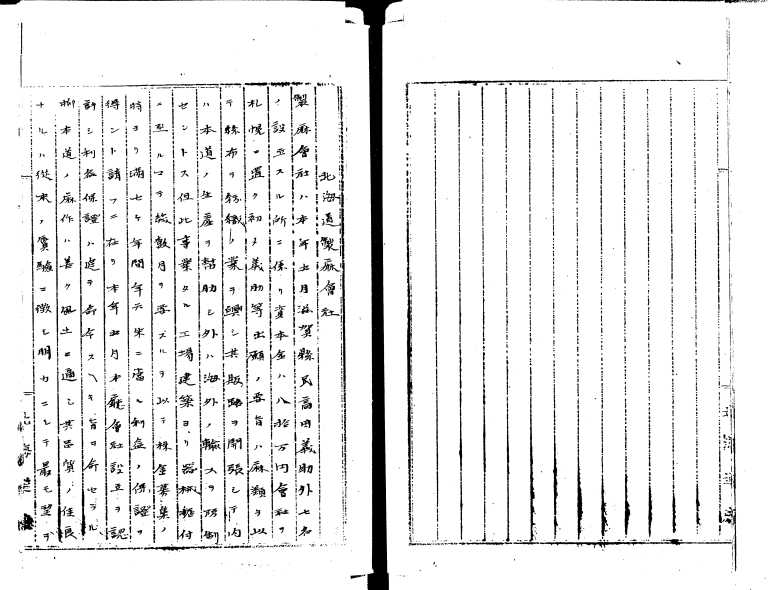 北海道製麻會社
製麻會社ハ本年五月滋賀縣民高田義助外七名
ノ設立スル所ニ係リ資本金ハ八拾万円會社ヲ
札幌ニ置ク初メ義助等出願ノ要旨ハ麻類ヲ以
テ絲布ヲ紡織ノ業ヲ興シ共販路ヲ開張シテ内
ハ本道ノ生産ヲ幇助シ外ハ海外ノ輸入ヲ防制
セントス但此事業タル工場建築ヨリ器械据付
ノ至ルマテ数月ヲ要スルヲ以テ株金募集ノ
時ヨリ満七ケ年間年六朱ニ當ル利益ノ保證ヲ
得ント請フニ在リ本年五月本廳會社設立ヲ認
許シ利益保證ハ追テ命令スヘキ旨ヲ命セラル
抑本道ノ麻作ハ善ク風土ニ適シ其品質ノ佳良
ナルハ従来ノ實驗ニ徴シ明カニシテ最モ望ヲ
北海道廳